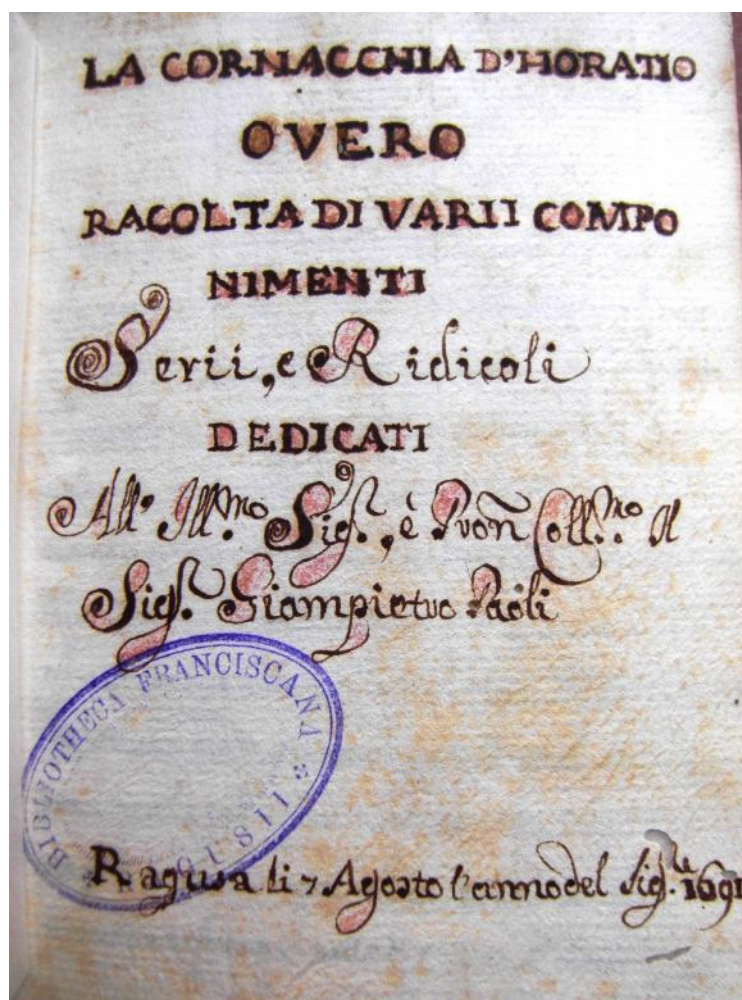 LA CORNACCHIA D'HORATIO
OVERO
RACOLTA DI VARII COMPO
NIMENTI
Serii, e Ridicoli
DEDICATI
All' Ill.mo Sig.r, è Pron Coll.mo Il
Sig.r Giampietro Paoli
BIBLIOTHECA FRANCISCANA
Ragusa li 7 Agosto l'anno del Sig.re 1691